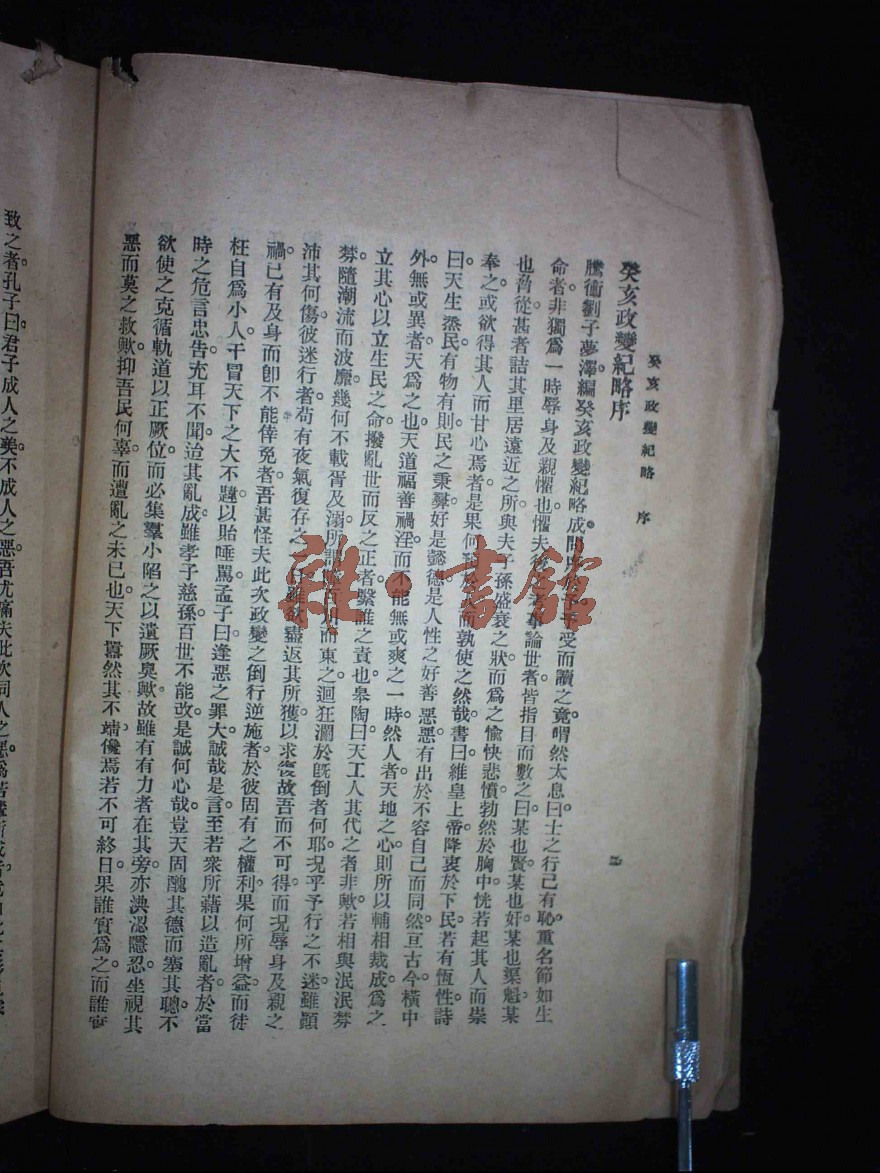 癸亥政變紀略　序
癸亥政變紀略序
騰衝劉子夢澤編癸亥政變紀略成問受而讀之。竟喟然太息曰。士之行己有恥。重名節如生
命者。非獨爲一時辱身及親懼也。懼夫後之考事論世者。皆指目而數之曰。某也賢。某也奸。某也渠魁。某
也脅從。甚者詰其里居遠近之所。與夫子孫盛衰之狀。而爲之愉快悲憤。勃然於胸中。恍若起其人而崇
奉之。或欲得其人而甘心焉者。是果何於人。而孰使之然哉。書曰。維皇上帝。降衷於下民。若有恆性。詩
曰。天生烝民。有物有則。民之秉彝。好是懿德。是人性之好善惡惡。有出於不容自己而同然。亘古今橫中
外。無或異者。天爲之也。天道福善禍淫。而不能無或爽之一時。然人者。天地之心。則所以輔相裁成。爲之
立其心以立生民之命。撥亂世而反之正者。繄誰之責也。皋陶曰。天工人其代之者非歟。若相與泯泯棼
棼。隨潮流而波靡。幾何不載胥及溺。所謂川而東之。迴狂瀾於旣倒者。何耶。況乎予行之不迷。雖顚
沛其何傷。彼迷行者。苟有夜氣復存之一日。雖欲盡返其所獲。以求復故吾而不可得。而況辱身及親之
禍。已有及身而卽不能倖免者。吾甚怪夫此次政變之倒行逆施者。於彼固有之權利。果何所增益。而徒
枉自爲小人。干冒天下之大不韙。以貽唾罵。孟子曰。逢惡之罪大。誠哉是言。至若衆所藉以造亂者。於當
時之危言忠告。充耳不聞。迨其亂成。雖孝子慈孫。百世不能改。是誠何心哉。豈天固醜其德而塞其聰。不
欲使之克循軌道。以正厥位。而必集羣小陷之。以遺厥臭歟。故雖有有力者在其旁。亦淟涊隱忍。坐視其
惡而莫之救歟。抑吾民何辜。而遭亂之未已也。天下囂然。其不靖儳焉若不可終日。果誰實爲之。而誰實
致之者。孔子曰。君子成人之美。不成人之惡。吾尤痛夫此次同人之惡。